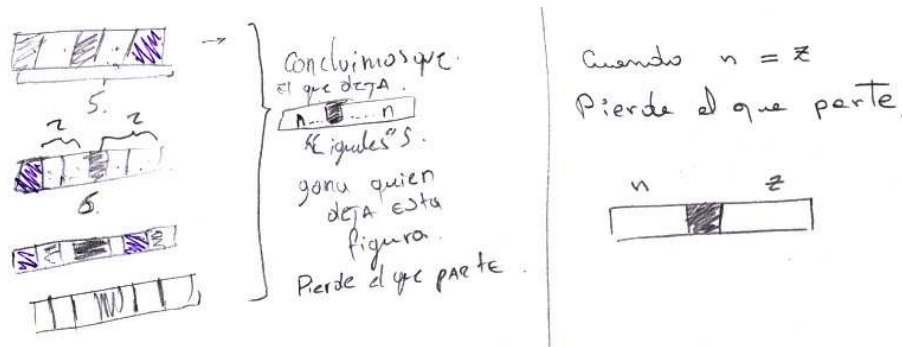 5.
2 2
6.
Concluimos que
el que DEJA.
n... ....n
"iguales" S.
gana quien
DEJA ESTA
figura.
Pierde el que PARTE.
Cuando n = z
Pierde el que parte.
n z